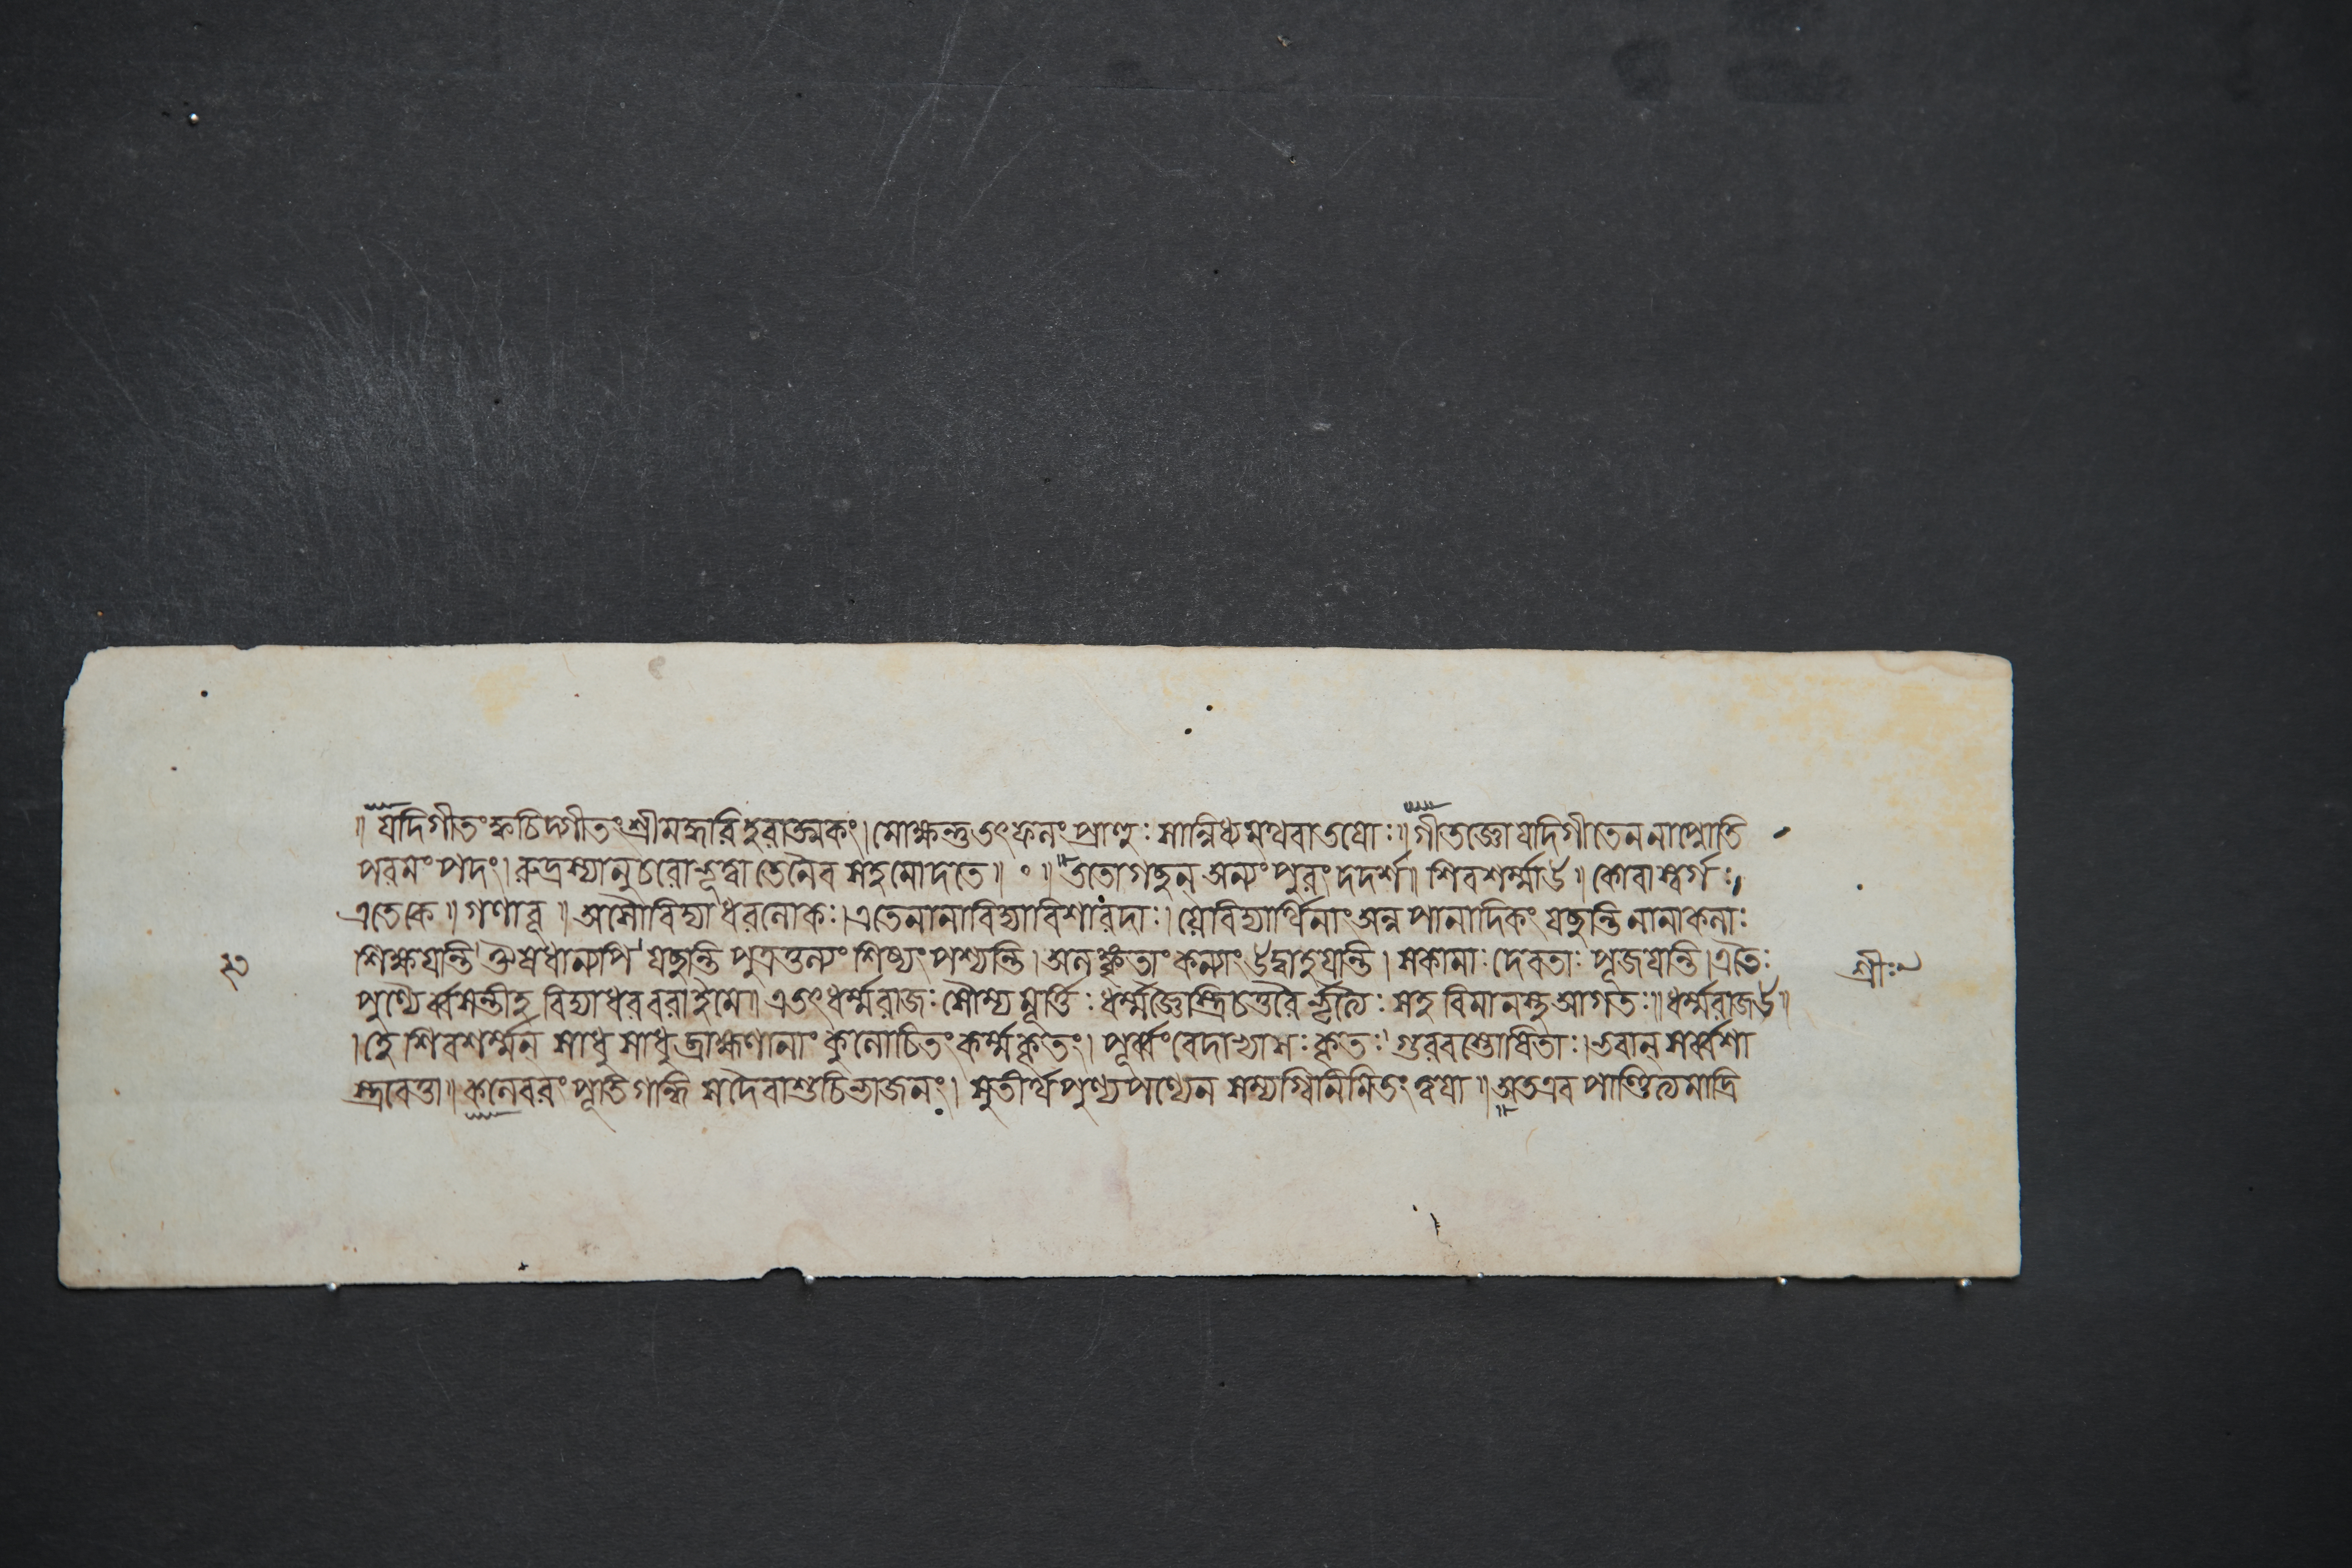 ॥ যদিগীতং ক্বচিদ্গীতং শ্রীমদ্ধরিহরাত্মকং। মোক্ষস্তুতৎফলং প্রাহুঃ সান্নিধ্যমথবাতয়োঃ॥ গীতজ্ঞোযদিগীতেন নাপ্নোতি
পরমং পদং। রুদ্রস্যানুচরোভূত্বা তেনৈব সহমোদতে॥ ॰ ॥ ততোগচ্ছন্ অন্যং পুরং দদর্শ॥ শিবশর্ম্মাউ॥ কোবাস্বর্গঃ।
এতেকে॥ গণাবূ॥ অসৌবিদ্যাধরলোকঃ। এতেনানাবিদ্যাবিশারদাঃ। যেবিদ্যার্থিনাং অন্নপানাদিকং যচ্ছন্তি নানাকলাঃ
শিক্ষয়ন্তি। ঔষধান্যপি যচ্ছন্তি পুত্রতুল্যং শিষ্যং পশ্যন্তি। অলঙ্কৃতাং কন্যাং উদ্বাহয়ন্তি। সকামাঃ দেবতাঃ পূজয়ন্তি। এতৈঃ
শ্রীঃ
পুণ্যৈর্ব্বসন্তীহ বিদ্যাধরবরাইমে॥ এতৎ ধর্ম্মরাজঃ সৌম্যমূর্ত্তিঃ ধর্ম্মজ্ঞৈস্ত্রিচতুরৈর্ভৃত্যৈঃ সহ বিমানস্থআগতঃ॥ ধর্ম্মরাজউ॥
। হে শিবশর্ম্মন্ সাধু সাধু ব্রাহ্মণানাং কুলোচিতং কর্ম্মকৃতং। পূর্ব্বং বেদাভ্যাসঃ কৃতঃ। গুরবস্তোষিতাঃ। ভবান্ সর্ব্বশা
স্ত্রবেত্তা॥ কলেবরং পূতিগন্ধি সদৈবাশুচিভাজনং। সুতীর্থপুণ্যপণ্যেন সম্যগ্বিনিমিতং ত্বয়া॥ অতএব পাণ্ডিত্যমাদ্রি